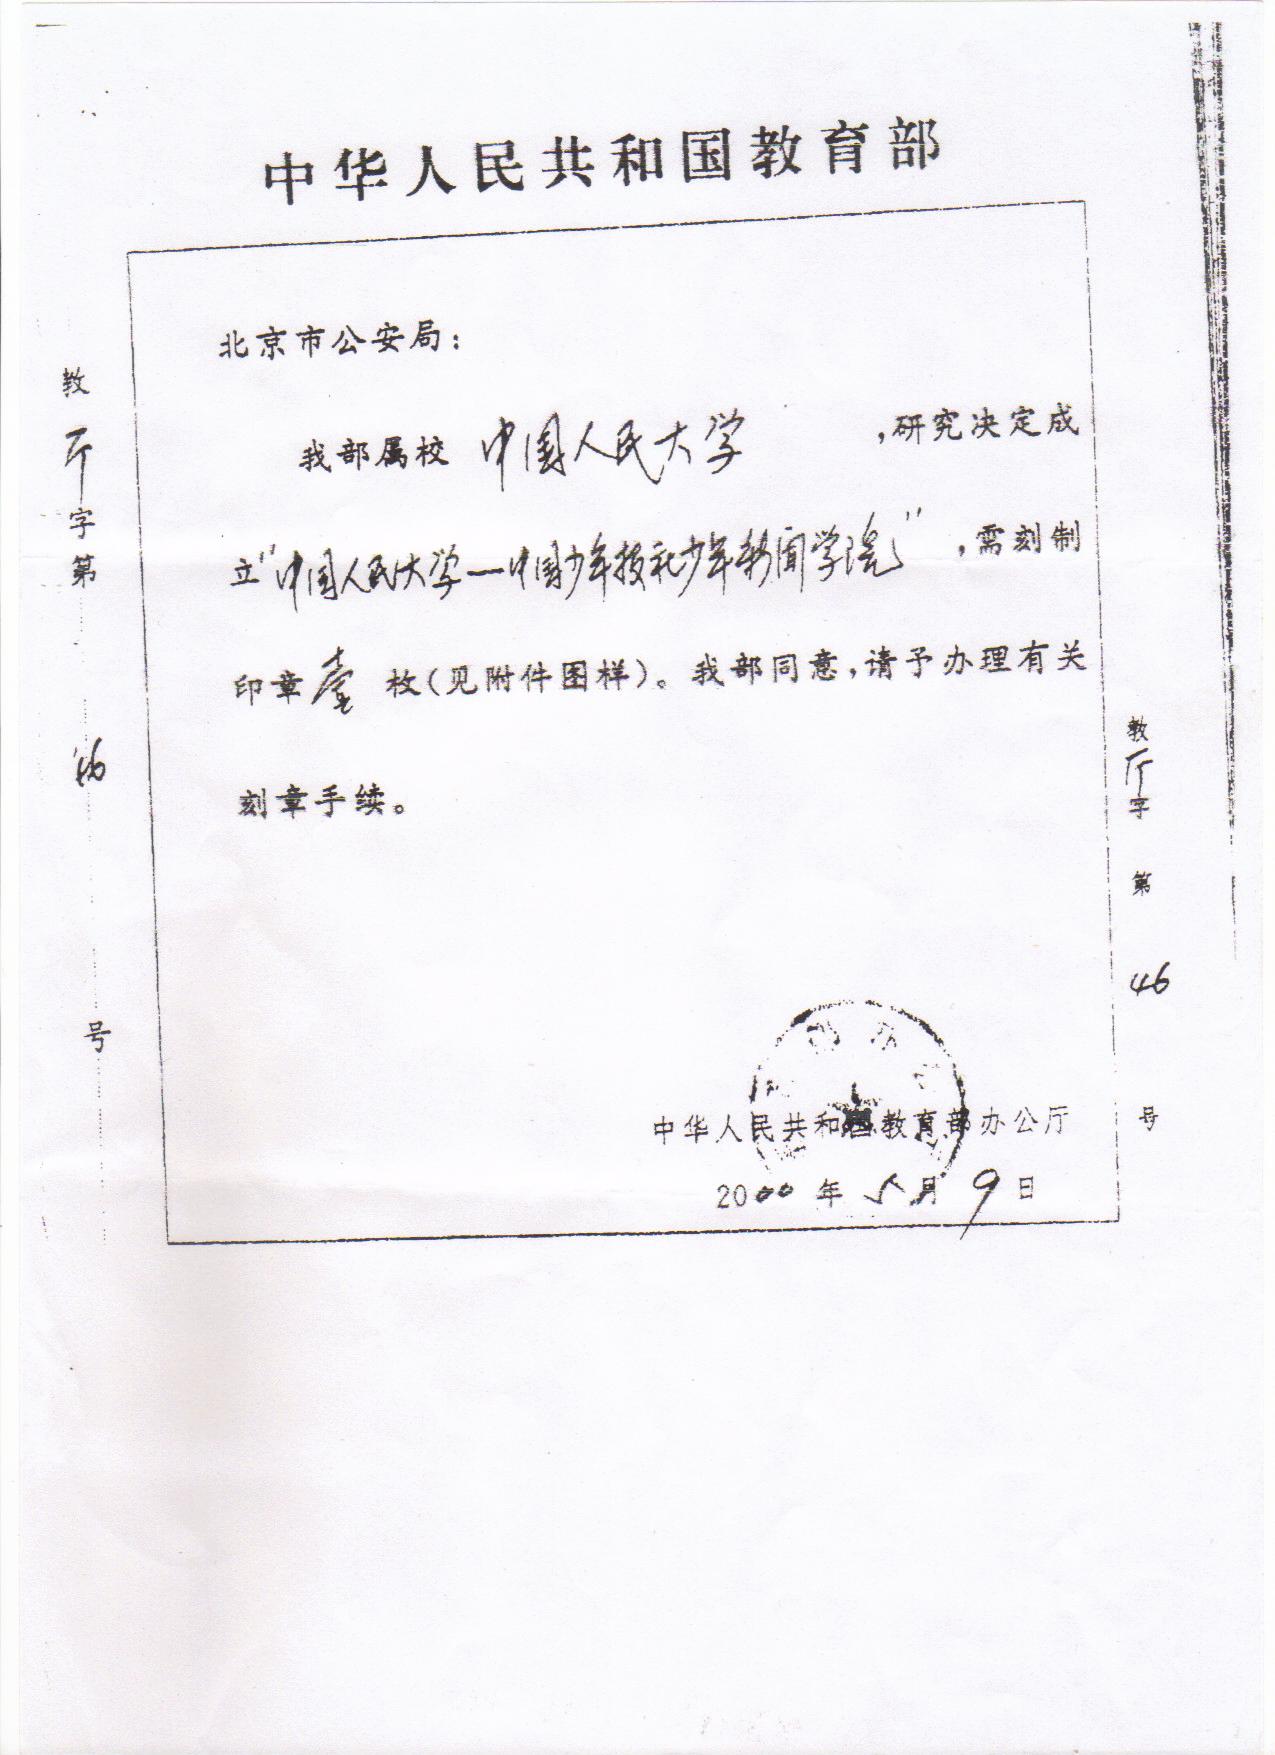 中华人民共和国教育部
北京市公安局：
我部属校 中国人民大学 ，研究决定成
立"中国人民大学—中国少年报社少年新闻学院"，需刻制
印章壹 枚(见附件图样)。我部同意，请予办理有关
刻章手续。
中华人民共和国教育部办公厅
2000 年 5 月 9 日
教厅字第 46 号
教厅字第 46 号